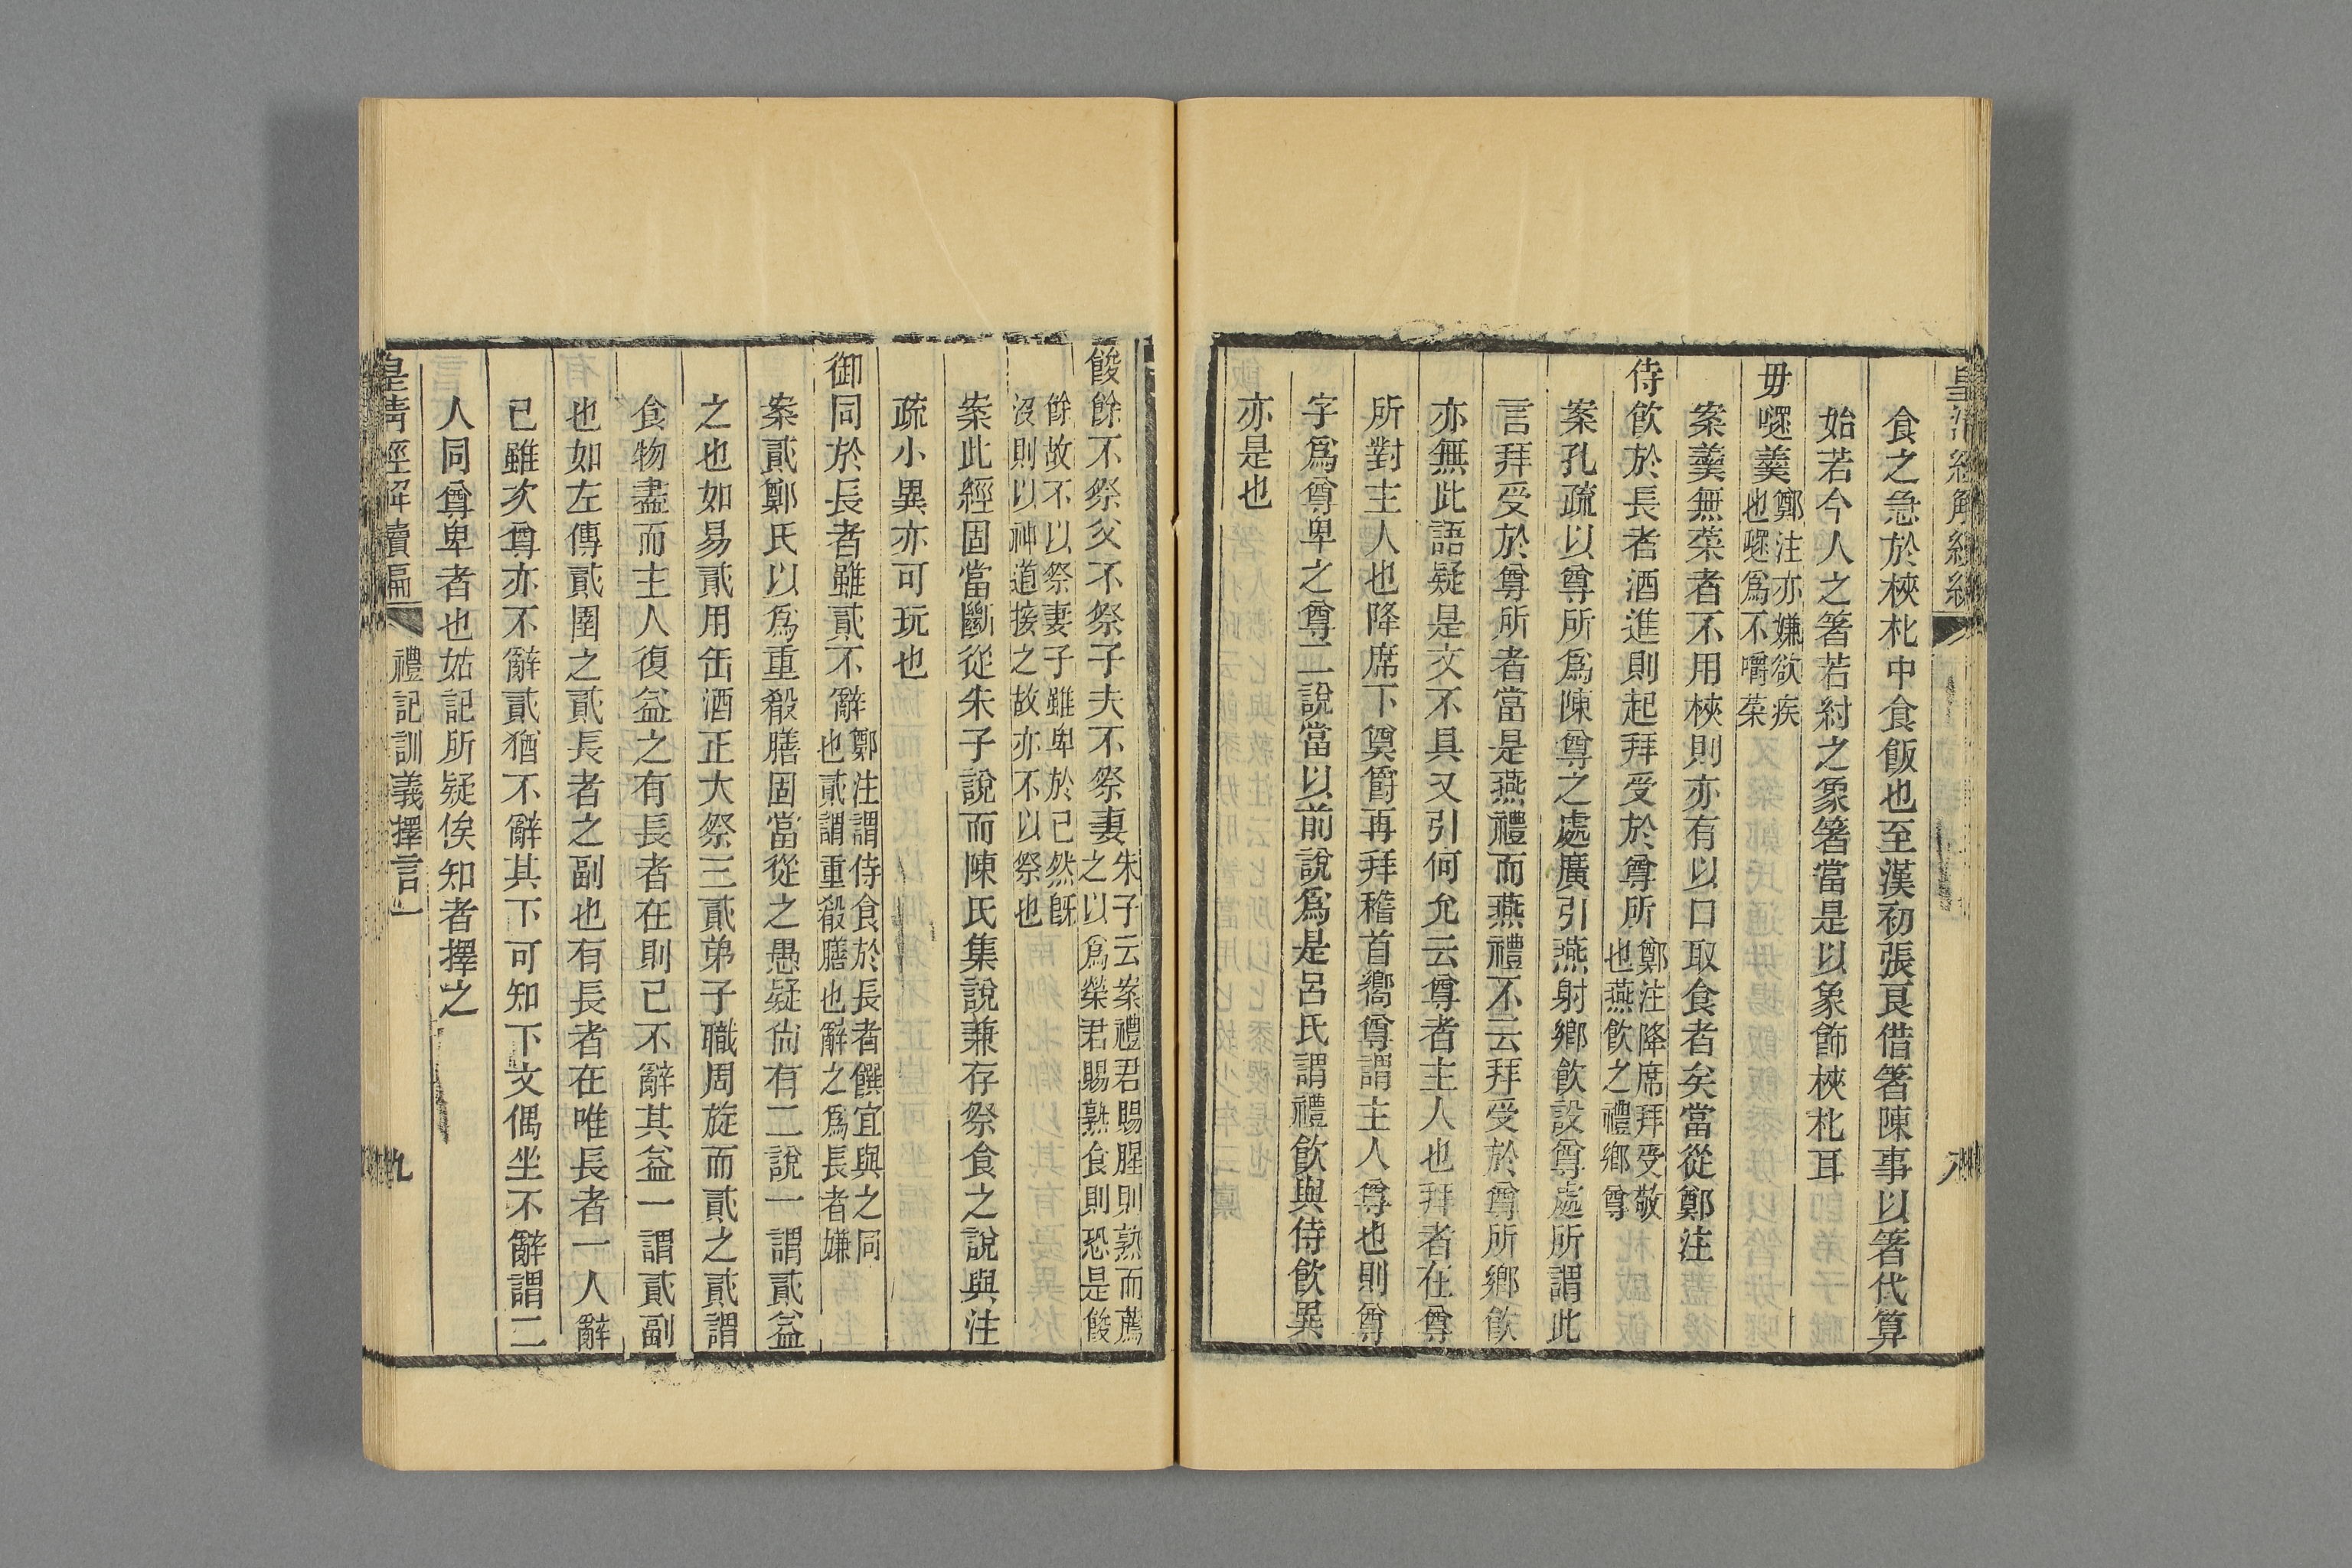 食之急於梜朼中食飯也至漢初張良借箸陳事以箸代算
始若今人之箸若紂之象箸當是以象飾梜朼耳
毋嚃羹鄭注亦嫌欲疾也嚃爲不嚼菜
案羹無菜者不用梜則亦有以口取食者矣當從鄭注
侍飲於長者酒進則起拜受於尊所鄭注降席拜受敬也燕飲之禮鄉尊
案孔疏以尊所爲陳尊之處廣引燕射鄉飲設尊處所謂此
言拜受於尊所者當是燕禮而燕禮不云拜受於尊所鄉飲
亦無此語疑是文不具又引何允云尊者主人也拜者在尊
所對主人也降席下奠爵再拜稽首嚮尊謂主人尊也則尊
字爲尊卑之尊二說當以前說爲是呂氏謂禮飲與侍飲異
亦是也
餕餘不祭父不祭子夫不祭妻朱子云案禮君賜腥則熟而薦之以爲榮君賜熟食則恐是餕
餘故不以祭妻子雖卑於已然旣沒則以神道接之故亦不以祭也
案此經固當斷從朱子說而陳氏集說兼存祭食之說與注
疏小異亦可玩也
御同於長者雖貳不辭鄭注謂侍食於長者饌宜與之同也貳謂重殽膳也辭之爲長者嫌
案貳鄭氏以爲重殽膳固當從之愚疑尙有二說一謂貳益
之也如易貳用缶酒正大祭三貳弟子職周旋而貳之貳謂
食物盡而主人復益之有長者在則已不辭其益一謂貳副
也如左傳貳圉之貳長者之副也有長者在唯長者一人辭
已雖次尊亦不辭貳猶不辭其下可知下文偶坐不辭謂二
人同尊卑者也姑記所疑俟知者擇之
皇淸經解續編 禮記訓義擇言一 九